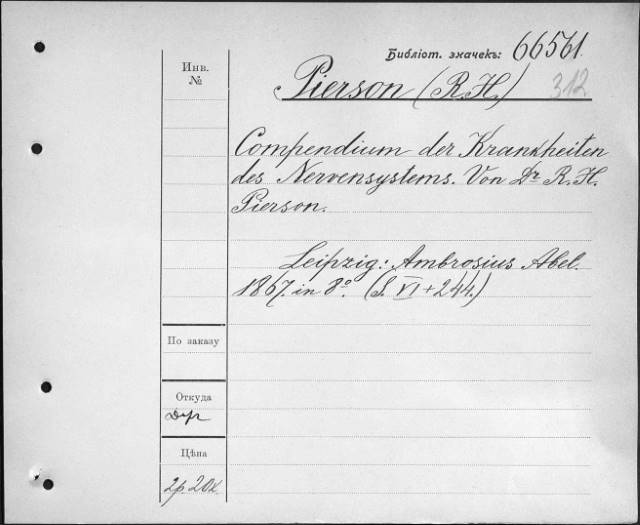 Библіот. значекъ: 66561.
Инв.
№
Pierson (R.H.) 312
Compendium der Krankheiten
des Nervensystems. Von Dr R. H.
Pierson.
Leipzig: Ambrosius Abel.
1867. in 8º. (S. VI + 244.)
По заказу
Откуда
Цѣна
2р. 20к.